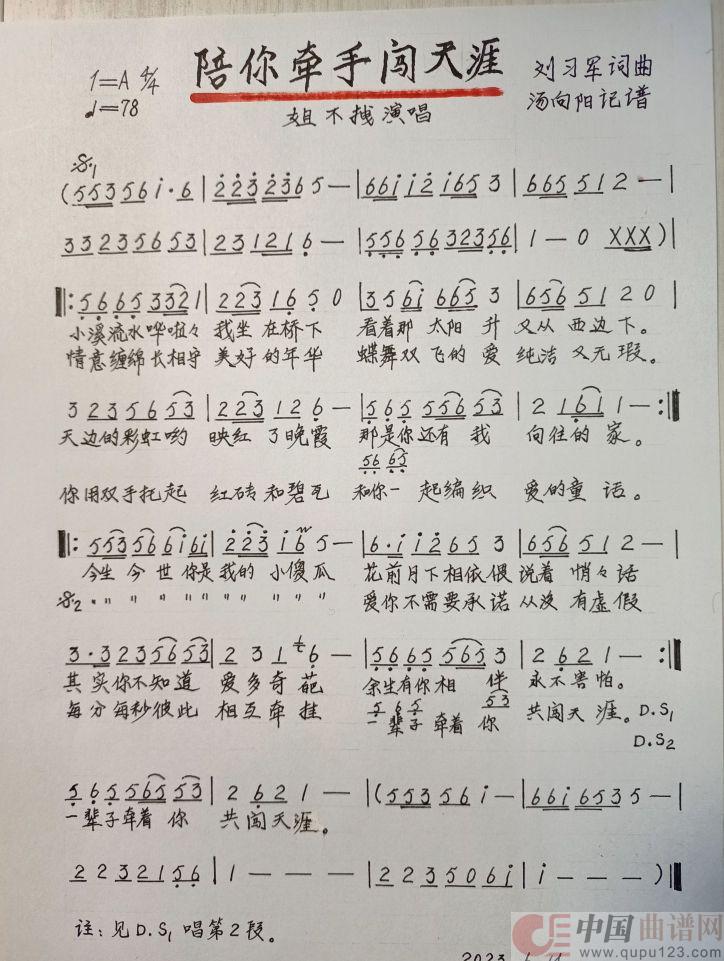 陪你牵手闯天涯
1=A 4/4
♩=78
姐不拽演唱
刘习军词曲
汤向阳记谱
𝄋1
(553561·6|2232365—|6611216553|665512—|
33235653|231216—|5565632356|1—0XXX)|
‖:56553321|2231650|356i6653|6565120|
小溪流水哗啦々 我坐在桥下 看着那太阳升 又从西边下。
情意缠绵长相守 美好的年华 蝶舞双飞的爱 纯洁又无瑕。
3235653|223126—|565556 53|21611—:‖
天边的彩虹哟 映红了晚霞 那是你还有我 向往的家。
56 65
你用双手托起 红砖和碧瓦 和你一起编织 爱的童话。
‖:553566i6i|223i65—|6·ii2653|656512—|
今生今世你是我的小傻瓜 花前月下相依偎 说着悄々话
𝄋2 〃〃〃〃〃〃〃〃〃〃 爱你不需要承诺 从没有虚假
3·3235653|2316—|56555653|2621—:‖
其实你不知道 爱多奇葩 余生有你相伴 永不害怕。
565 53
每分每秒彼此 相互牵挂 一辈子牵着你 共闯天涯。D.S1
D.S2
565565 53|2621—|(553561—|661653 5—|
一辈子牵着你 共闯天涯。
2232156|1———|2235061|i———)‖
注:见D.S1唱第2段。
中国曲谱网
www.qupu123.com